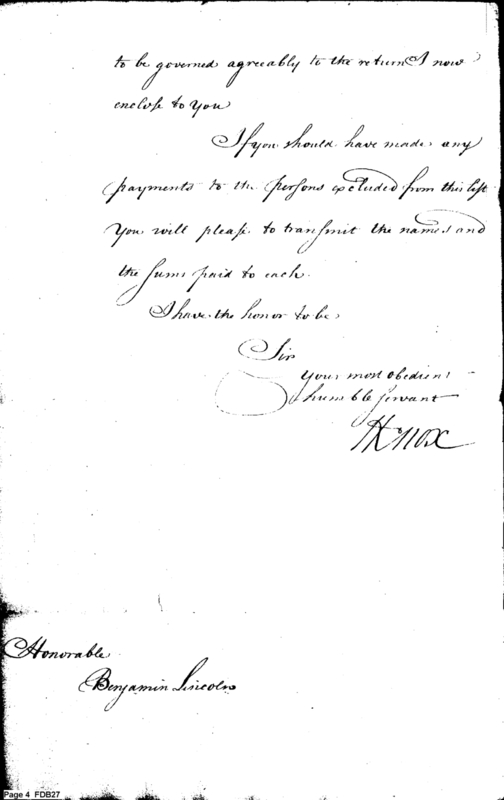 to be governed agreeably to the return I now
enclose to You
If you should have made any
payments to the persons excluded from this list
You will please to transmit the names and
the sums paid to each.
I have the honor to be
Sir
Your most obedient
humble servant
HKnox
Honorable
Benjamin Lincoln
Page 4 FDB27